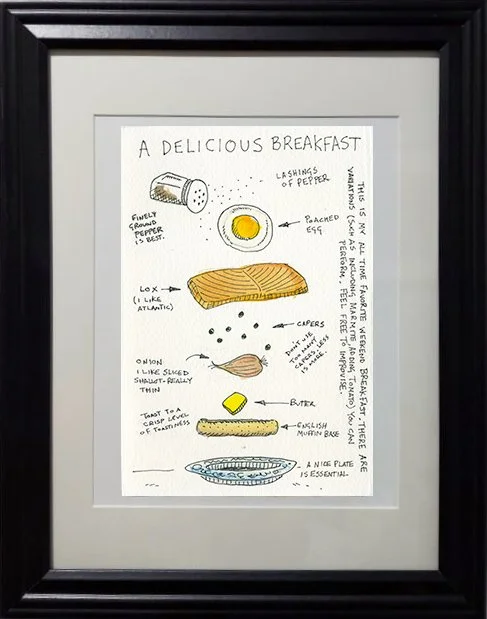 A DELICIOUS BREAKFAST
LASHINGS
OF PEPPER
FINELY
GROUND
PEPPER
IS BEST.
POACHED
EGG
LOX
(I LIKE
ATLANTIC)
CAPERS
DON'T USE
TOO MANY
CAPERS. LESS
IS MORE.
ONION
I LIKE SLICED
SHALLOT-REALLY
THIN
BUTTER
TOAST TO A
CRISP LEVEL
OF TOASTINESS
ENGLISH
MUFFIN BASE
A NICE PLATE
IS ESSENTIAL
THIS IS MY ALL TIME FAVORITE WEEKEND BREAKFAST. THERE ARE
VARIATIONS (SUCH AS INCLUDING MARMITE, ADDING TOMATO) YOU CAN
PERFORM. FEEL FREE TO IMPROVISE.